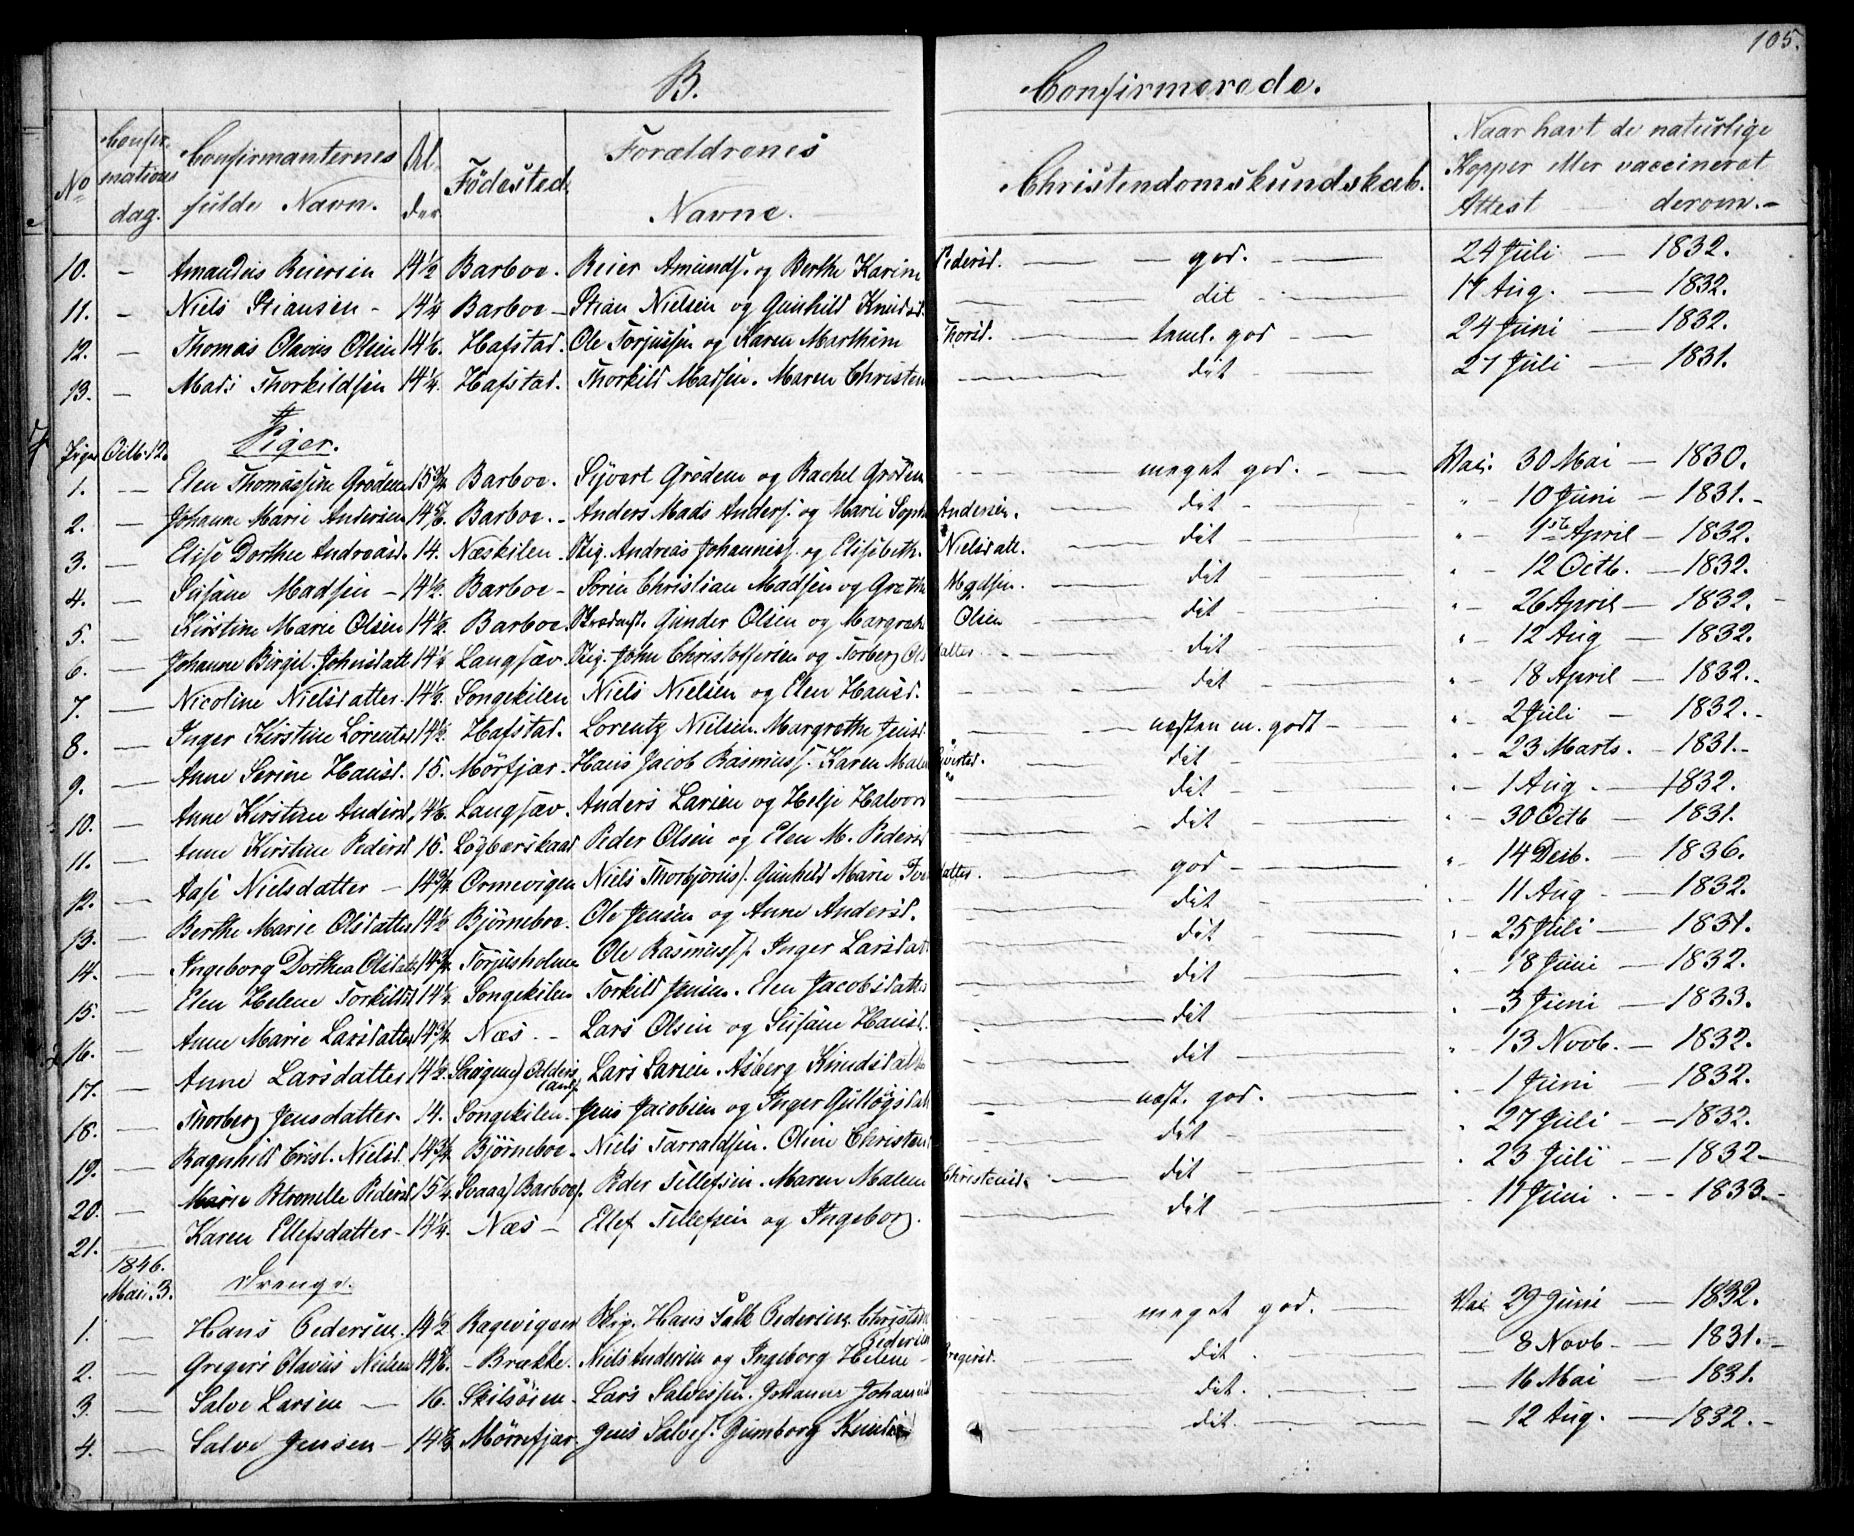 105.
B. Confirmerede.
No Confirmations dag. Confirmanternes fulde Navn. Alder Födested. Forældrenes Navne. Christendomskundskab. Naar havt de naturlige Kopper eller vaccineret Attest derom.
10. — Amandus Reiersen 14½ Barboe. Reier Amunds. og Berthe Karine Pedersd. — god. — 24 Juli — 1832.
11. — Niels Stiansen - 14¼ Barboe - Stian Nielsen og Gunhild Knudsd. — dit — 17 Aug. — 1832.
12. — Thomas Olavus Olsen Hafstad. Ole Torjussen og Karen Marthine Thorsd. — taml. god — 24 Juni — 1832.
13. — Mads Thorkildsen 14¼ Hafstad. Thorkild Madsen. Maren Christen — dit — 27 Juli — 1831.
Piger Octb. 12. Piger.
1. — Elen Thomassine Grödem 15¾ Barboe. Sijvert Grödem og Rachel Grödem — meget god. — Vac. 30 Mai — 1830.
2. — Johanne Marie Andersen Barboe. - Anders Mads Anders. og Marie Soph Andersen. — dit — " - 10 Juni — 1831. -
3. — Elise Dorthea Andreasd. 14. Næskilen - Andreas Johanness. og Elisebeth Nielsdatt. — dit — " - 1ste April — 1832.
4. — Susane Madsen - 14½. Barboe - Sören Christian Madsen og Grethe Madsen. — dit — " - 12 Octb. — 1832.
5. — Kirstine Marie Olsen 14½. Barboe. Gunder Olsen og Margrethe Olsen — dit — " - 26 April — 1832.
6. — Johanne Birgit. Johnsdatt 14¼ Langsæv. John Christoffersen og Torber Olsdatter. — dit — " - 12 Aug — 1832.
7. — Nicoline Nielsdatter. 14½. Songekilen Niels Nielsen og Elen Hansd. — dit — " - 18 April — 1832. -
8. — Inger Kirstine Lorentsd 14½. Hafstad. Lorentz Nielsen. Margrethe Jensd. — næsten m. godt — " - 2 Juli — 1832. -
9. — Anne Serine Hansd. 15. Mörfjær. Hans Jacob Rasmuss. Karen Malen — dit — " - 23 Marts. — 1831. -
10. — Anne Kirstine Andersd. Langsæv. Anders Larsen og Helje Halvors — dit — " - 1 Aug. — 1832.
11. — Anne Kirstine Pedersd 15. Lögberskaad Peder Olsen og Elen M. Pedersd — dit — " - 30 Octb — 1831.
12. — Aase Nielsdatter - 14¾. Ormevigen Niels Thorbjörns. Gunhild Marie datter. — god — " - 14 Decb. — 1836.
13. — Berthe Marie Olsdatter 14½ Björneboe. Ole Jensen og Anne Andersd. — dit — 11 Aug — 1832.
14. — Ingeborg Dorthea Olsdatt 14¾ Torjusholmen Ole Rasmuss. Inger Larsdatt — dit — 25 Juli — 1831.
15. — Elen Helene Torkildsd 14½. Songekilen Torkild Jensen. Elen Jacobsdatter — dit — 18 Juni — 1832.
16. — Anne Marie Larsdatter 14¾. Næs. - Lars Olsen og Susane Hansd. — dit — 3 Juni — 1833.
17. — Anne Larsdatter 14½. Lars Larsen. Asberg Knudsdatter — dit — 13 Novb. — 1832.
18. — Thorber Jensdatter. 14. Songekilen. Jens Jacobsen og Inger Gullögsdatt — næst. god. — 1 Juni — 1832.
19. — Ragnhild Nielsd. 14¾. Björneboe - Niels Tarraldsen. Oline Christens — dit — 27 Juli — 1832.
20. — Marie Petronelle Pedersd 15¼. Svaaa) Barboe. Peder Tellefsen. Maren Malene Christensd. — dit — 23 Juli — 1832 -
21. — Karen Ellefsdatter - 14¼. Næs - Ellef Tellefsen og Ingebor. — dit — 11 Juni. — 1833. -
1846. Mai. 3. Drenge.
1. — Hans Pedersen. 14½ Ragevigen Skip. Hans Falk Pedersen. Christ Pedersen — meget god. — Vac. 29 Juni — 1832.
2. — Gregers Olavus Nielsen - Brække. Niels Andersen og Ingeborg Helene - Gregersd. — dit — 8 Novb. — 1831. -
3. — Salve Larsen — 16. Skilsöen - Lars Salvessen. Johanne Johannsd — dit. — 16 Mai — 1831.
4. — Salve Jensen - Mörrefjær. Jens Salves. Gumborg Knuds — dit. — 12 Aug. — 1832. -